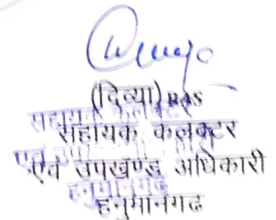 (दिव्या) RAS
सहायक कलक्टर
एवं उपखण्ड अधिकारी
हनुमानगढ